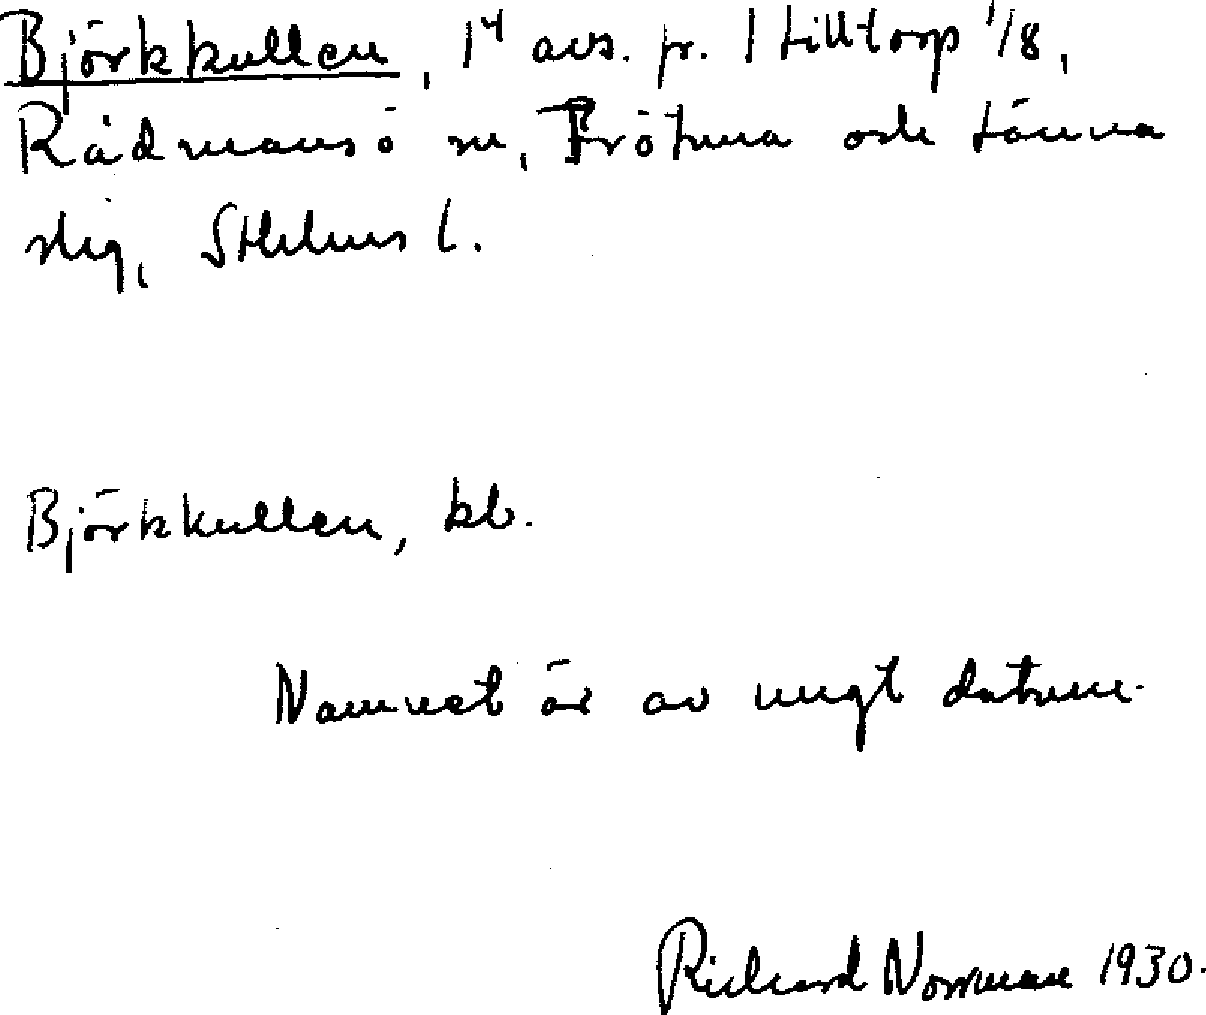 Björkkullen, 1⁴ avs. fr. 1 Lilltorp 1/8,
Rådmansö sn, Frötuna och Länna
slg, Sthlms l.
Björkkullen, kb.
Namnet är av ungt datum.
Richard Norrman 1930.